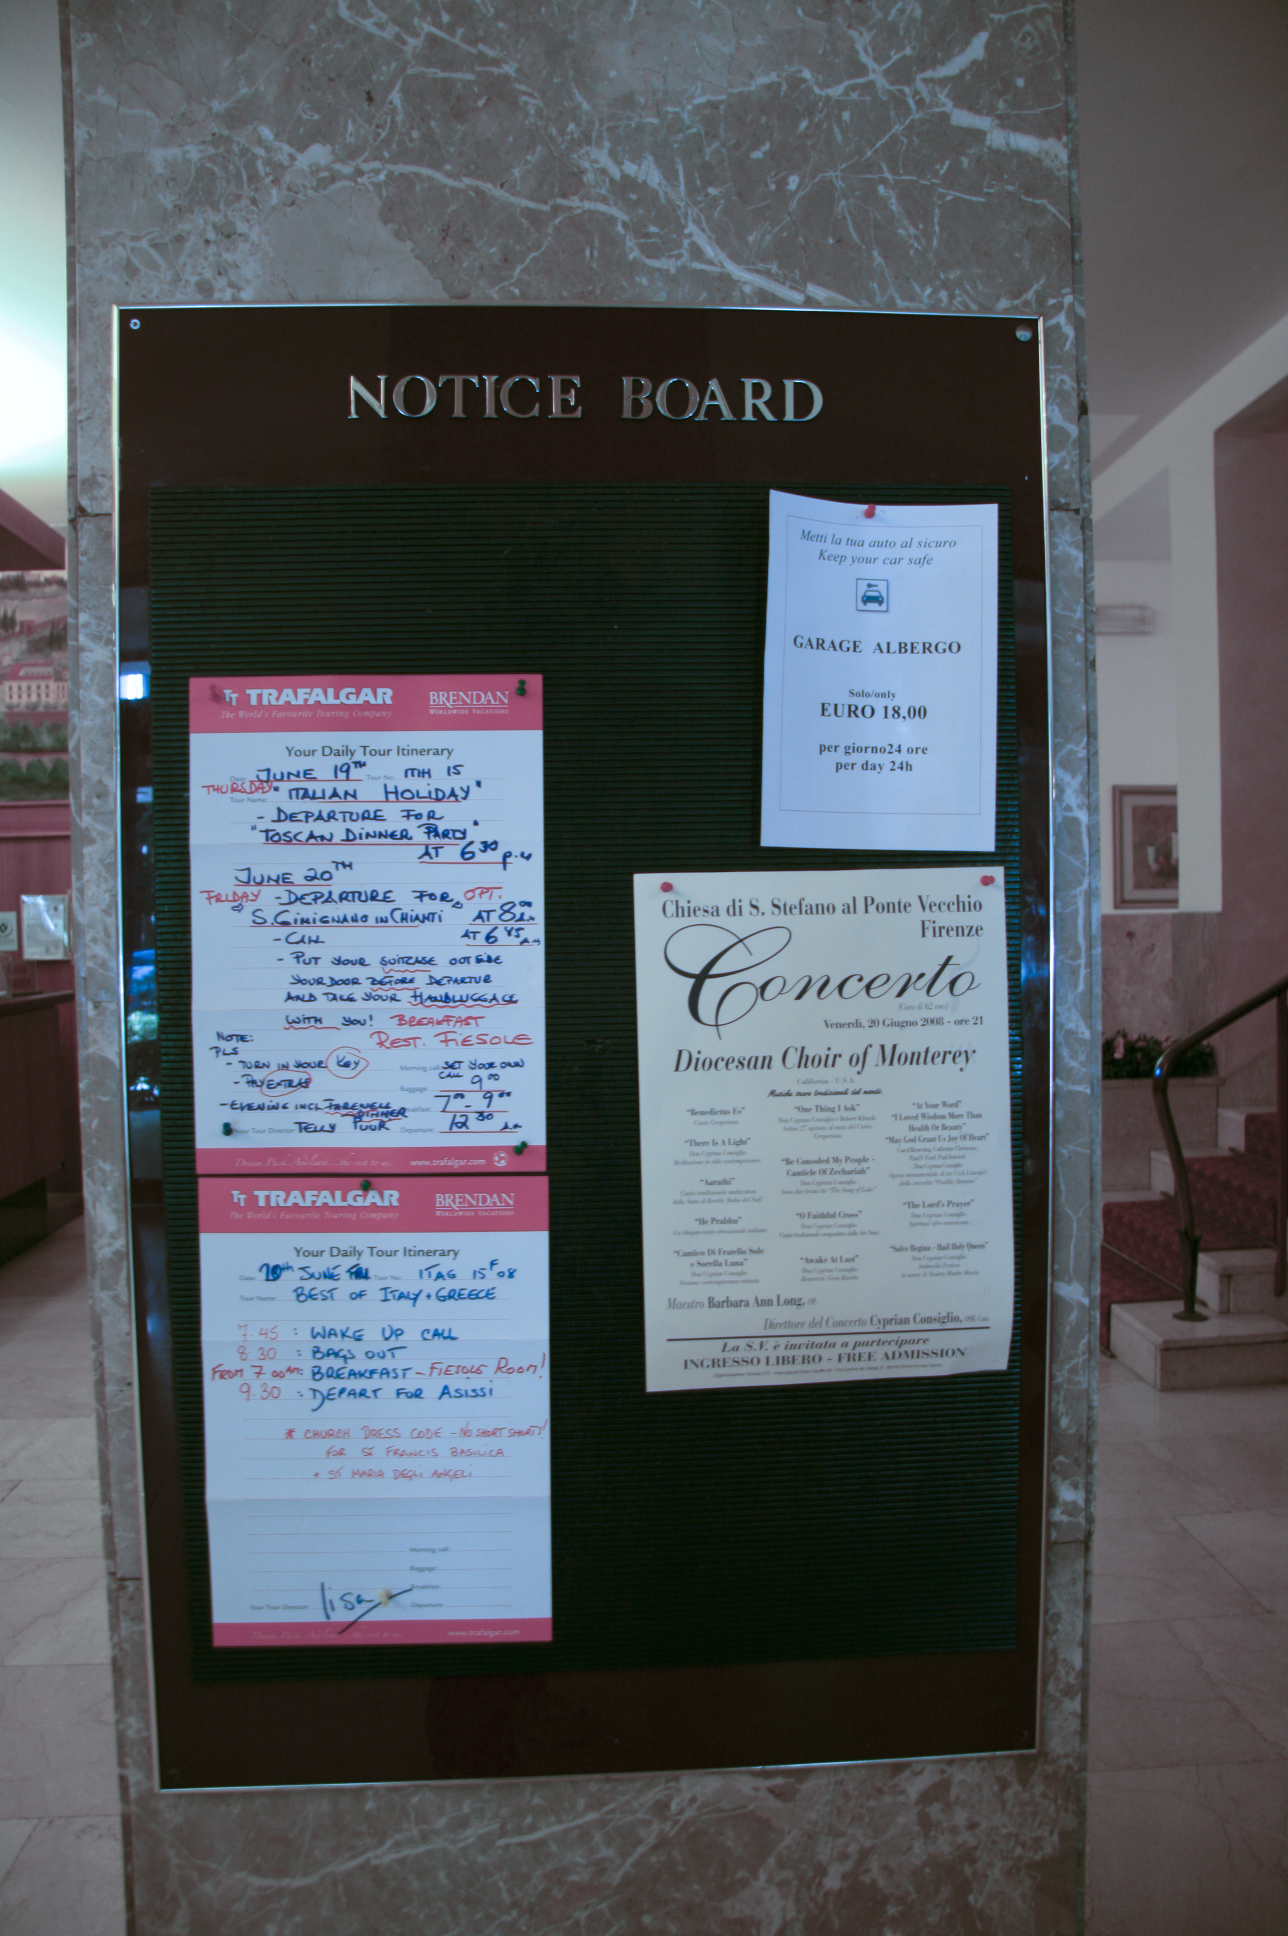 NOTICE BOARD
Metti la tua auto al sicuro
Keep your car safe
GARAGE ALBERGO
Solo/only
EURO 18,00
per giorno24 ore
per day 24h
TT TRAFALGAR
The World's Favourite Touring Company
BRENDAN
WORLDWIDE VACATIONS
Your Daily Tour Itinerary
Date: JUNE 19TH Tour No: ITIH 15
THURSDAY
Tour Name: "ITALIAN HOLIDAY"
- DEPARTURE FOR
"TOSCAN DINNER PARTY"
AT 6 30 p.m
JUNE 20TH
FRIDAY - DEPARTURE FOR OPT.
S. GIMIGNANO IN CHIANTI AT 8 00
- CALL AT 6 45
- PUT YOUR SUITCASE OUTSIDE
YOUR DOOR BEFORE DEPARTUR
AND TAKE YOUR HANDLUGGAGE
WITH YOU! BREAKFAST
REST. FIESOLE
NOTE:
PLS
- TURN IN YOUR KEY
- PAY EXTRAS
- EVENING INCL. FAREWELL
DINNER
Morning call: SET YOUR OWN
CALL
Baggage: 9 00
Breakfast: 7 00 - 9 00
Departure: 12 30
Your Tour Director:
www.trafalgar.com
TT TRAFALGAR
The World's Favourite Touring Company
BRENDAN
WORLDWIDE VACATIONS
Your Daily Tour Itinerary
Date: 20th JUNE FRI Tour No: ITAG 15F 08
Tour Name: BEST OF ITALY + GREECE
7.45 : WAKE UP CALL
8.30 : BAGS OUT
FROM 7 00 AM: BREAKFAST - FIESOLE ROOM!
9.30 : DEPART FOR ASISSI
* CHURCH DRESS CODE - NO SHORT SHORTS!
FOR ST FRANCIS BASILICA
+ ST MARIA DEGLI ANGELI
Morning call:
Baggage:
Breakfast:
Your Tour Director: lisa
Departure:
www.trafalgar.com
Chiesa di S. Stefano al Ponte Vecchio
Firenze
Concerto
(Coro di 62 voci)
Venerdi, 20 Giugno 2008 - ore 21
Diocesan Choir of Monterey
California - U.S.A.
Musiche sacre tradizionali del mondo
"Benedictus Es"
"There Is A Light"
"Aarathi"
"He Prabhu"
"Cantico Di Fratello Sole
e Sorella Luna"
"One Thing I Ask"
"Be Consoled My People -
Canticle Of Zechariah"
"O Faithful Cross"
"Awake At Last"
"At Your Word"
"I Loved Wisdom More Than
Health Or Beauty"
"May God Grant Us Joy Of Heart"
"The Lord's Prayer"
"Salve Regina - Hail Holy Queen"
Maestro Barbara Ann Long,
Direttore del Concerto Cyprian Consiglio,
La S.V. è invitata a partecipare
INGRESSO LIBERO - FREE ADMISSION